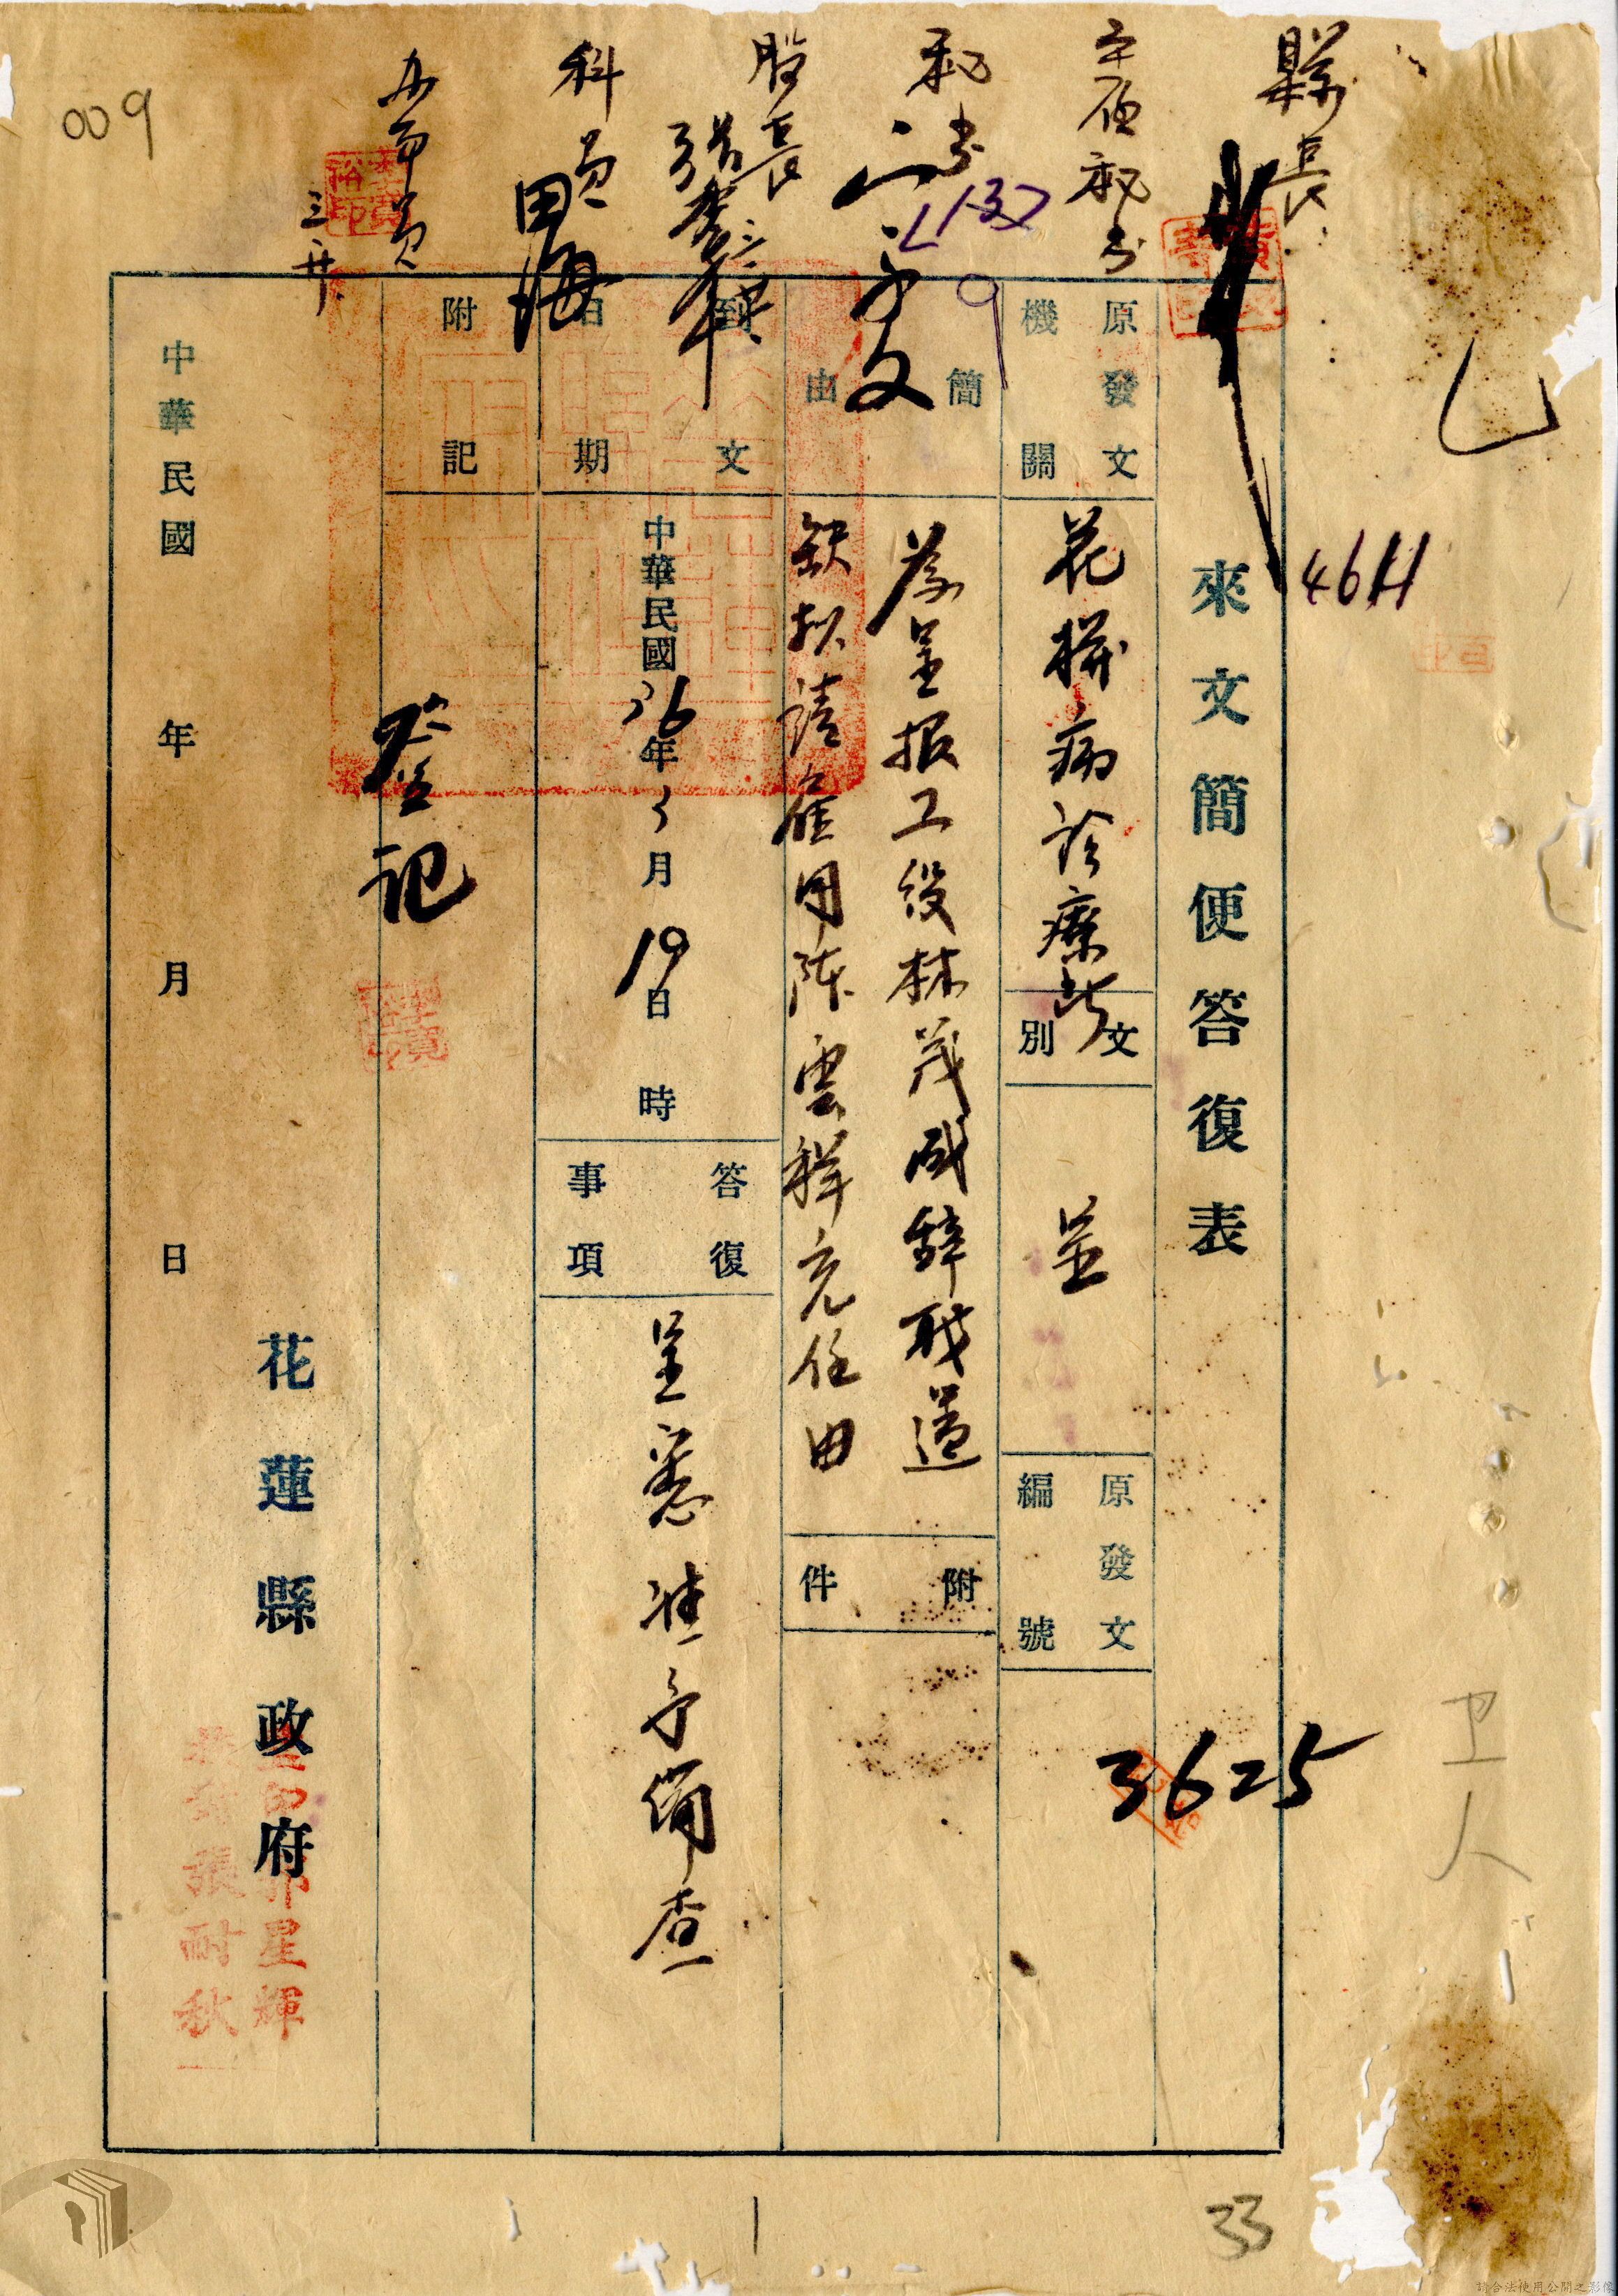 009
縣長
主任秘書
秘書
股長
科員
办事員
三、廿
46H
來文簡便答復表
原發文機關
花柳病診療所
文別
呈
原發文編號
3625
簡由
為呈報工役林茂成辭職遺
缺擬請僱用陳雲祥充任由
附件
到文日期
中華民國36年3月19日時
答復事項
呈悉准予備查
附記
登記
花蓮縣政府
中華民國年月日
郭星輝
張耐秋
卫人
33
請合法使用公開之影像